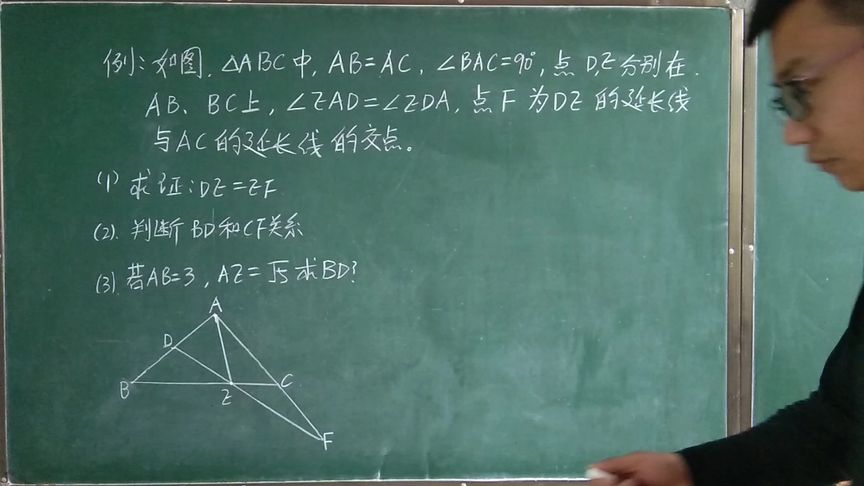 例：如图，△ABC中，AB=AC，∠BAC=90°，点D,E分别在
AB、BC上，∠EAD=∠EDA，点F为DE的延长线
与AC的延长线的交点。
(1) 求证：DE=EF
(2). 判断BD和CF关系
(3) 若AB=3，AE=√5求BD?
A
D
B
E
C
F